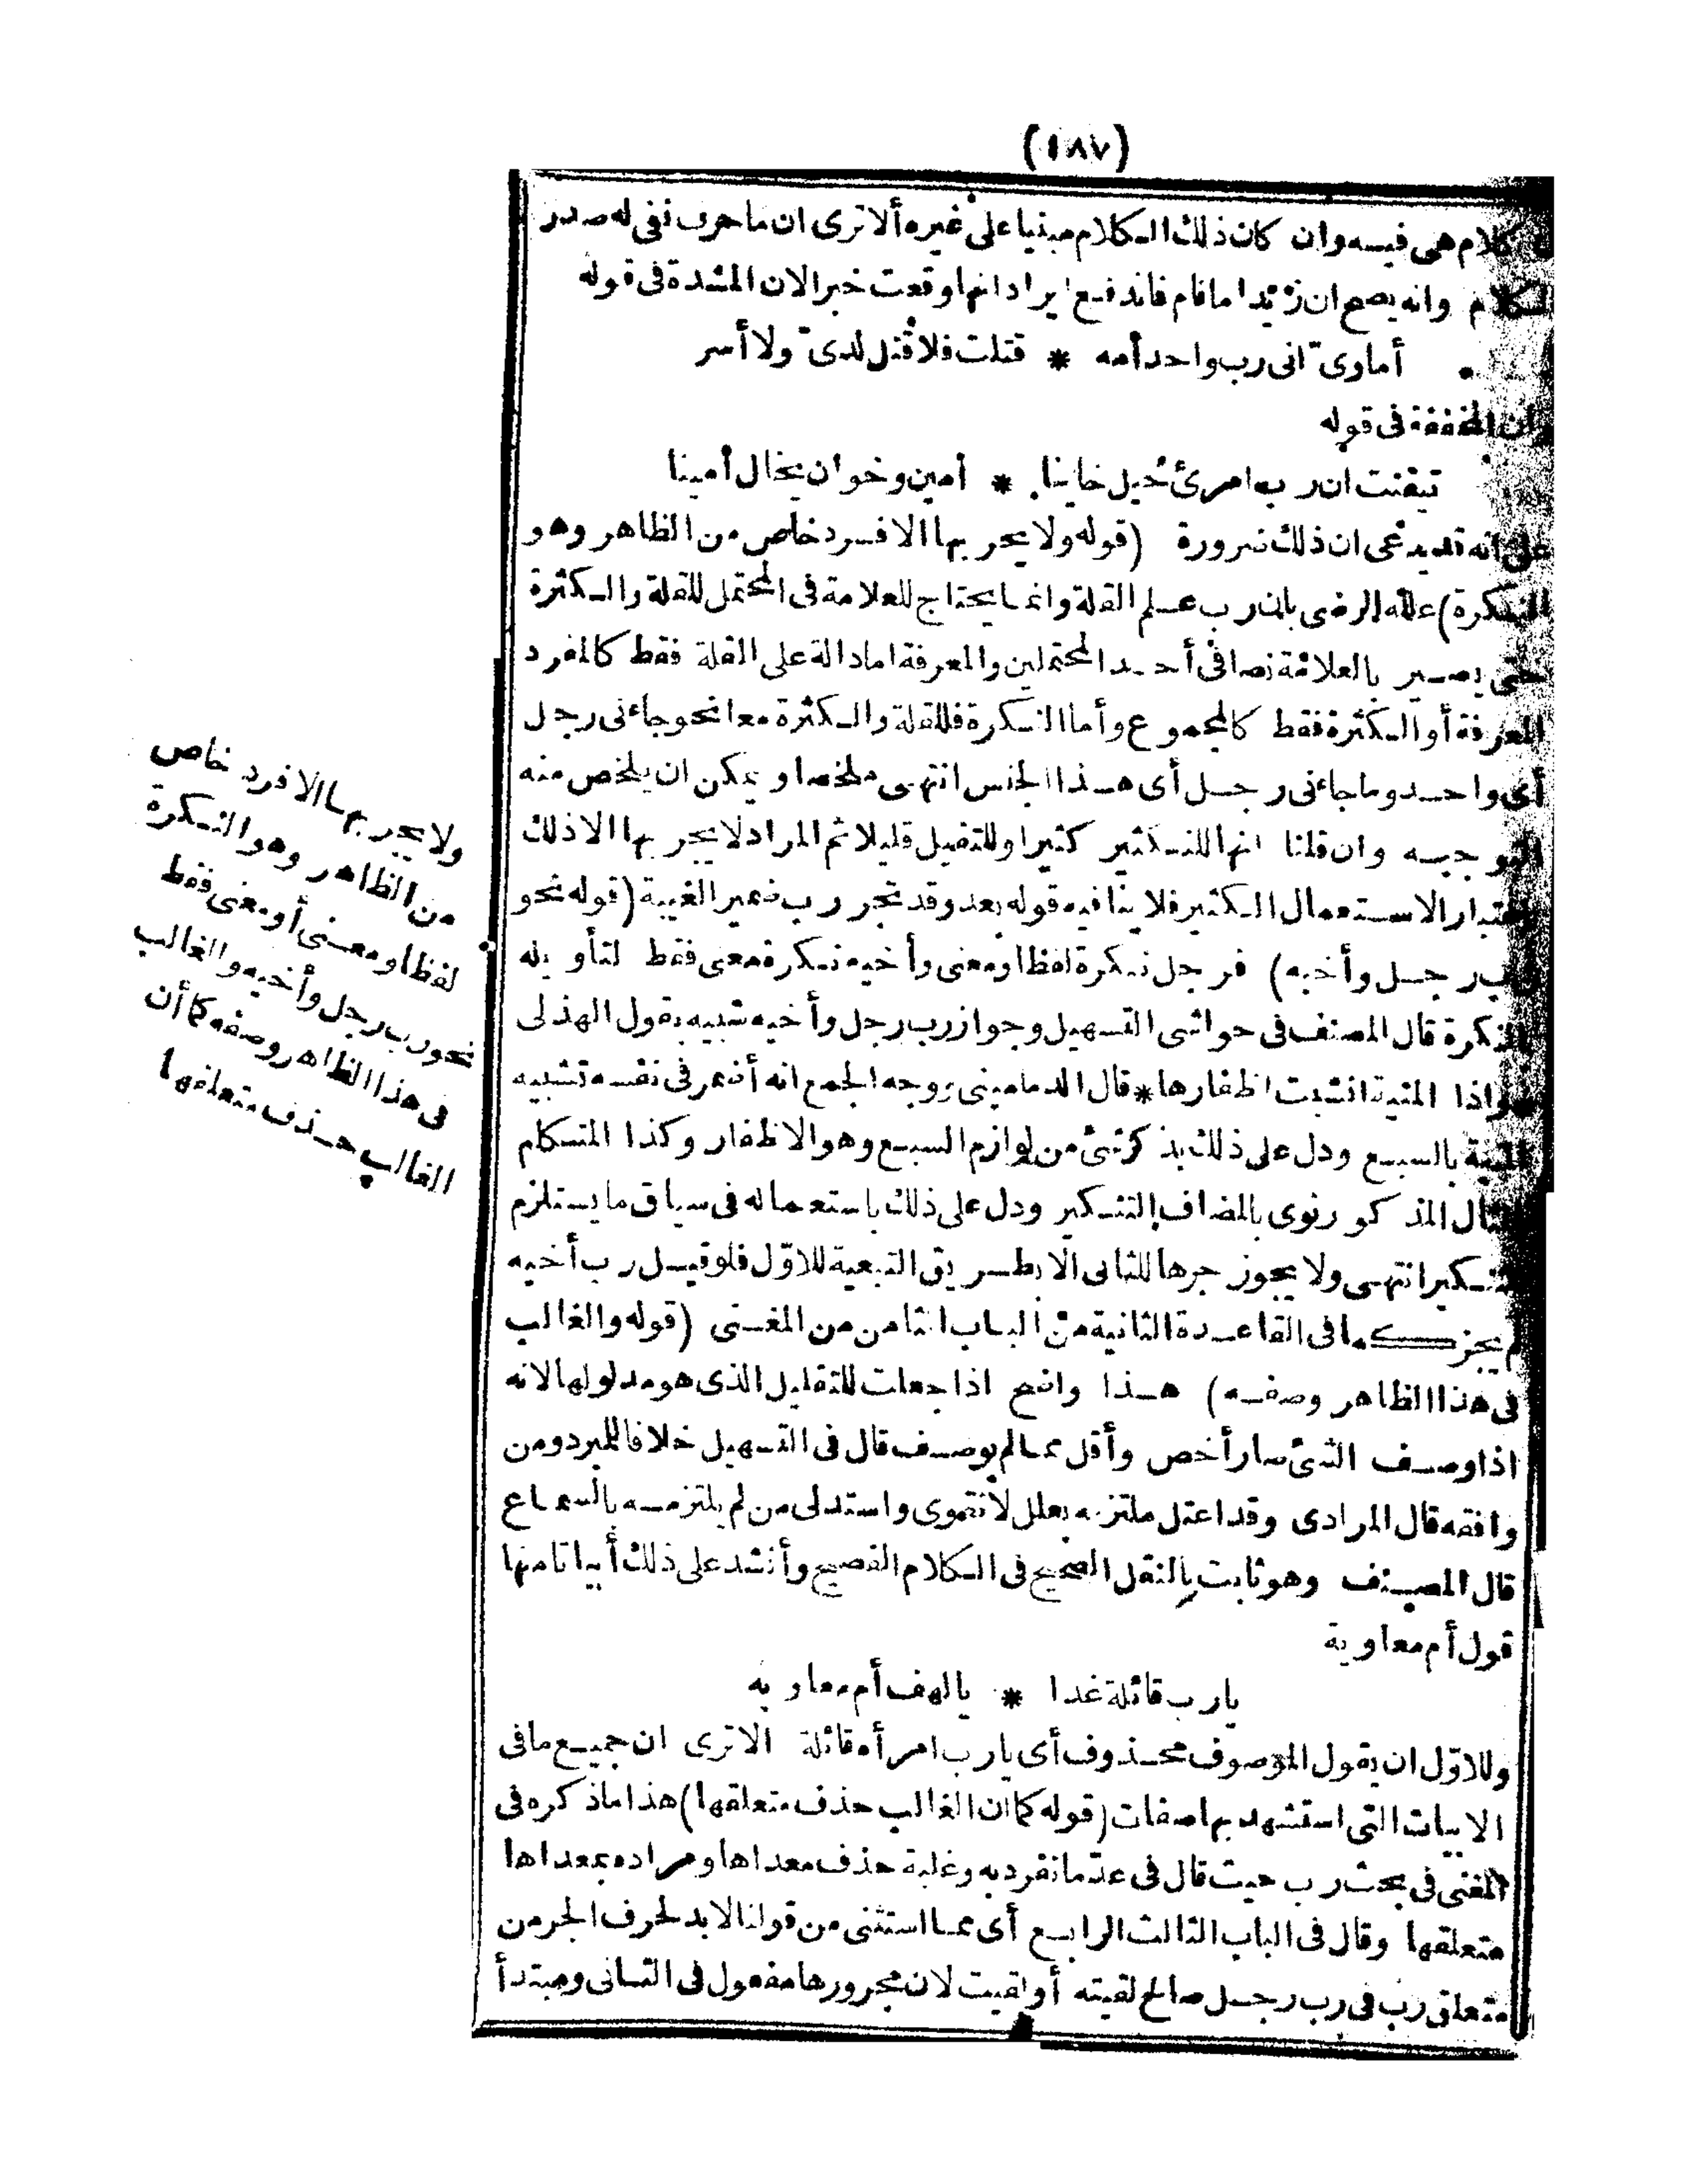 (١٨٧)
كلام هى فيه وان كان ذلك الكلام مبنيا على غيره ألا ترى ان ما حرف نفى له صدر
الكلام وانه يصح ان زيدا ما قام فاندفع ايراد انها وقعت خبرالان المشددة فى قوله
أماوىّ انى رب واحد أمه * قتلت فلا قتل لدىّ ولا أسر
وان المخففة فى قوله
تيقنت ان رب امرئ خيل خاينا * أمين وخوان يخال أمينا
على انه قد يدعى ان ذلك ضرورة (قوله ولا يجر بها الا فرد خاص من الظاهر وهو
النكرة) علله الرضى بان رب علم القلة وانما يحتاج للعلامة فى المحتمل للقلة والكثرة
حتى يصير بالعلامة نصا فى أحد المحتملين والمعرفة اما دالة على القلة فقط كالمفرد
المعرفة أو الكثرة فقط كالمجموع وأما النكرة فللقلة والكثرة معا نحو جاءنى رجل
أى واحد وما جاءنى رجل أى هذا الجنس انتهى ملخصا ويمكن ان يلخص منه
التوجيه وان قلنا انها للتكثير كثيرا وللتقليل قليلا ثم المراد لا يجر بها الا ذلك
باعتبار الاستعمال الكثير فلا ينافيه قوله بعد وقد تجر رب ضمير الغيبة (قوله نحو
رب رجل وأخيه) فرجل نكرة لفظا ومعنى وأخيه نكرة معنى فقط لتأويله
بالنكرة قال المصنف فى حواشى التسهيل وجواز رب رجل وأخيه شبيه بقول الهذلى
واذا المنية انشبت اظفارها * قال الدمامينى ووجه الجمع انه أضمر فى نفسه تشبيه
المنية بالسبع ودل على ذلك بذكر شئ من لوازم السبع وهو الاظفار وكذا المتكلم
بالمثال المذكور نوى بالمضاف التنكير ودل على ذلك باستعماله فى سياق ما يستلزم
التنكير انتهى ولا يجوز جرها للثانى الا بطريق التبعية للاوّل فلو قيل رب أخيه
لم يجز كما فى القاعدة الثانية من الباب الثامن من المغنى (قوله والغالب
فى هذا الظاهر وصفه) هذا واضح اذا جعلت للتقليل الذى هو مدلولها لانه
اذا وصف الشئ صار أخص وأقل مما لم يوصف قال فى التسهيل خلافا للمبرد ومن
وافقه قال المرادى وقد اعتل ملتزمه بعلل لا تقوى واستدل من لم يلتزمه بالسماع
قال المصنف وهو ثابت بالنقل الصحيح فى الكلام الفصيح وأنشد على ذلك أبياتا منها
قول أم معاوية
يارب قائلة غدا * يالهف أم معاويه
وللاوّل ان يقول الموصوف محذوف أى يارب امرأه قائلة الاترى ان جميع ما فى
الابيات التى استشهد بها صفات (قوله كما ان الغالب حذف متعلقها) هذا ما ذكره فى
المغنى فى بحث رب حيث قال فى عدّ ما نفرد به وغلبة حذف معداها ومراده بمعداها
متعلقها وقال فى الباب الثالث الرابع أى مما استثنى من قولنا لابد لحرف الجر من
متعلق رب فى رب رجل صالح لقيته أو لقيت لان مجرورها مفعول فى الثانى ومبتدأ
ولا يجر بها الا فرد خاص
من الظاهر وهو النكرة
لفظا ومعنى أو معنى فقط
نحو رب رجل وأخيه والغالب
فى هذا الظاهر وصفه كما أن
الغالب حذف متعلقها